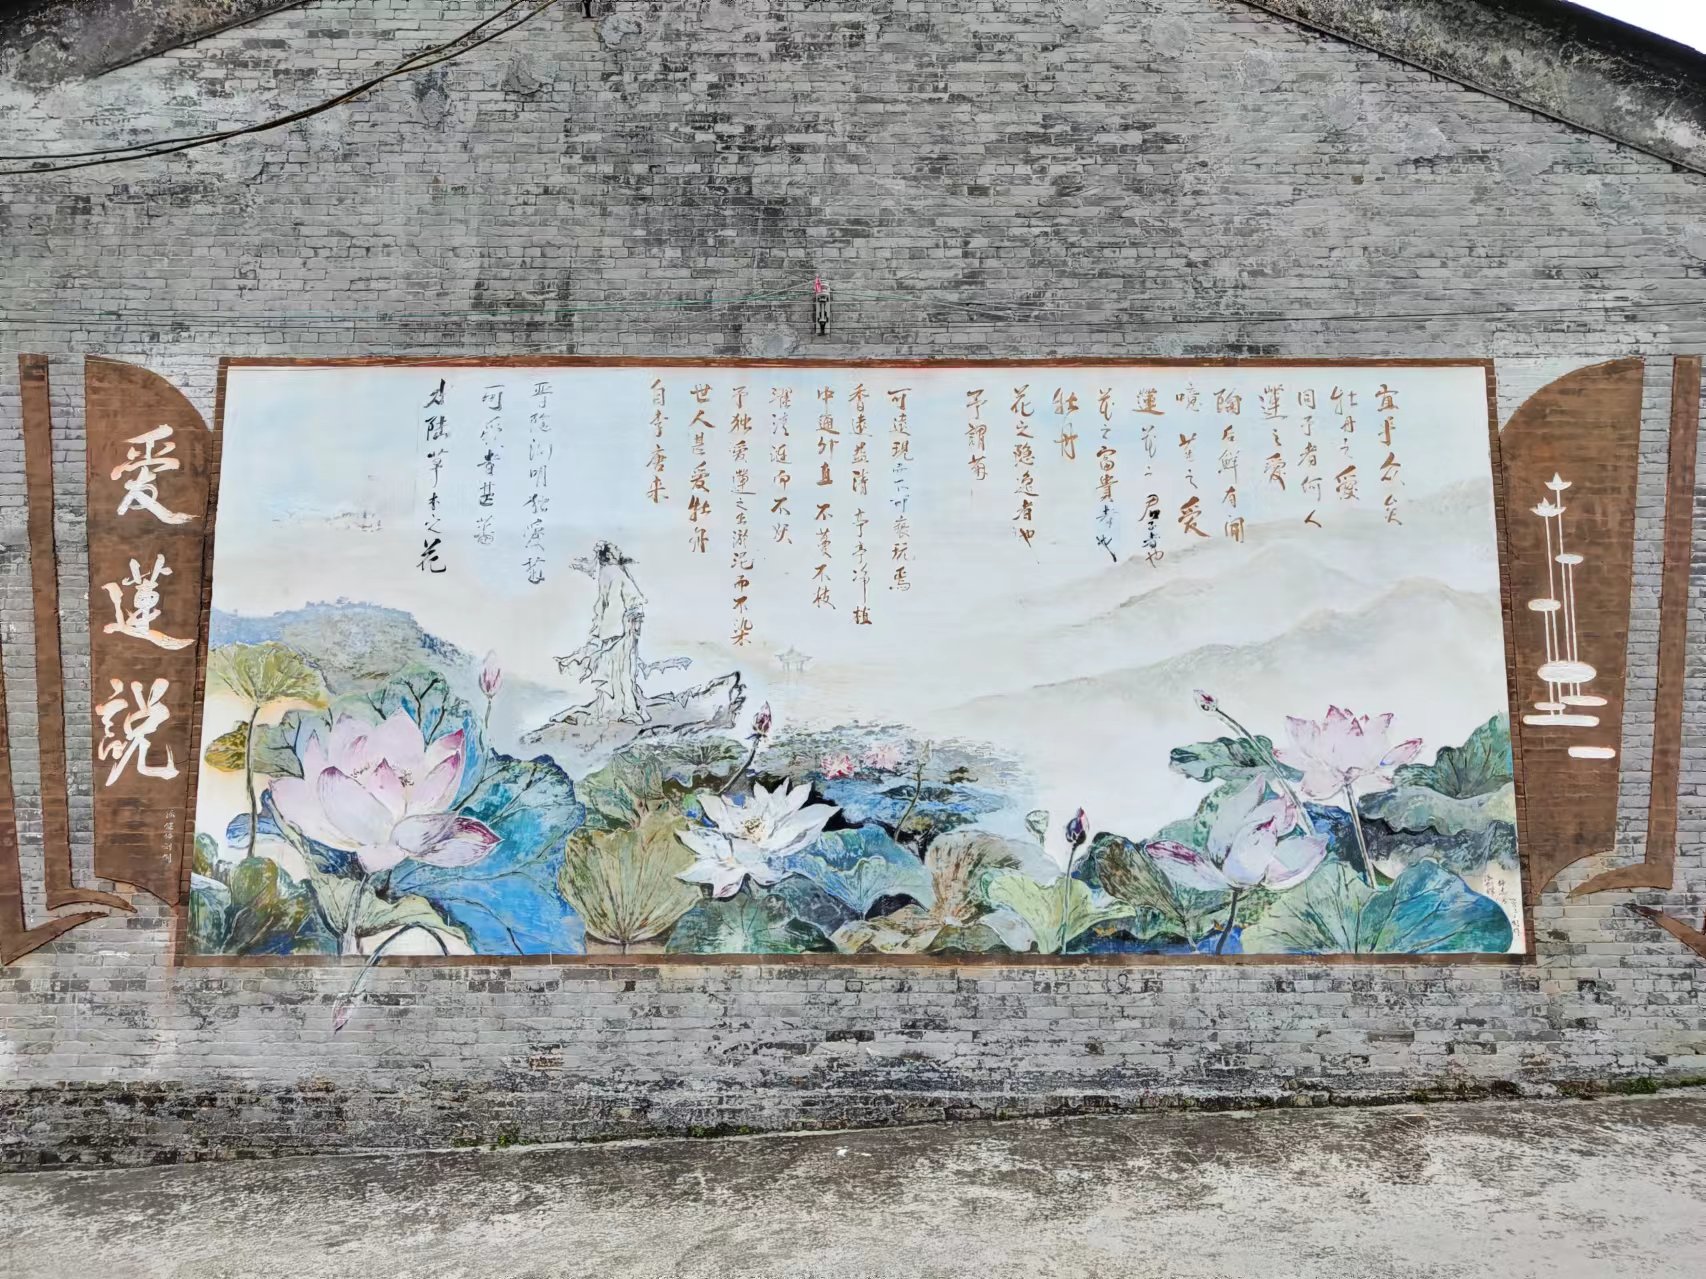 爱蓮説
水陸草木之花
可愛者甚蕃
晋陶渊明独愛菊
自李唐来
世人甚爱牡丹
予独爱蓮之出淤泥而不染
濯清涟而不妖
中通外直 不蔓不枝
香遠益清 亭亭净植
可遠观而不可亵玩焉
予謂菊
花之隐逸者也
牡丹
花之富貴者也
蓮 花之君子者也
噫 菊之爱
陶后鲜有闻
蓮之爱
同予者何人
牡丹之爱
宜乎众矣